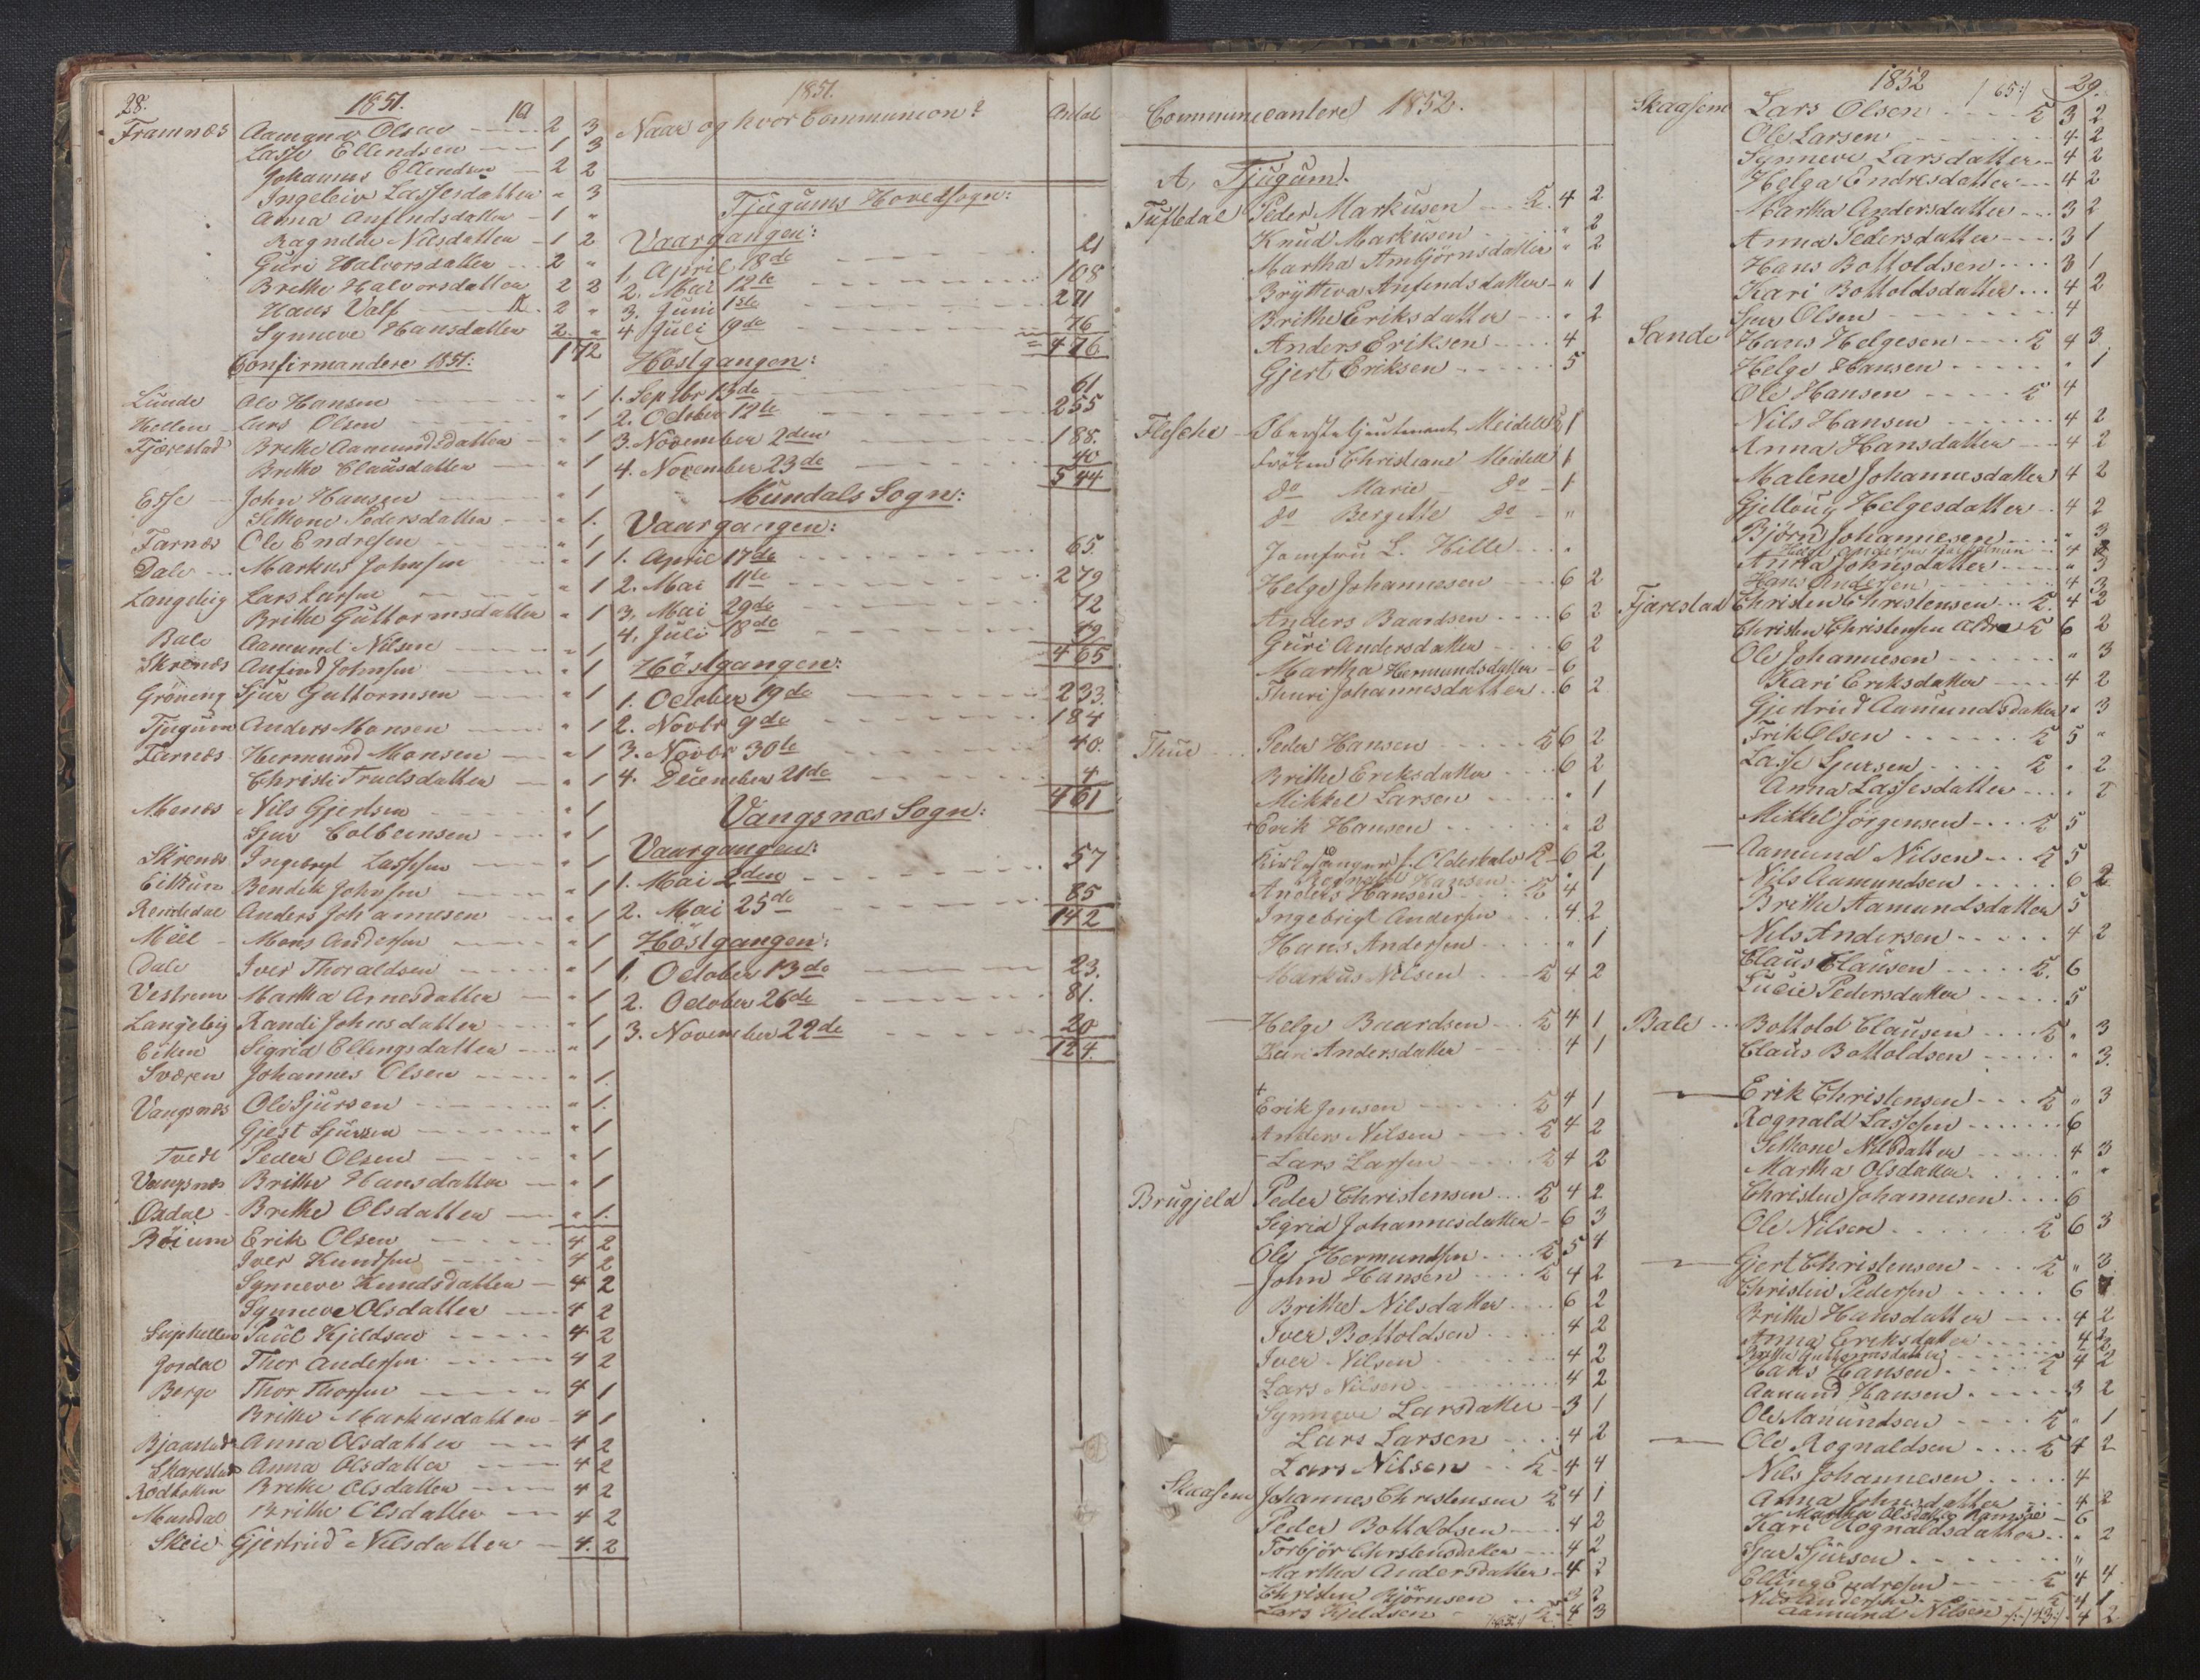 28.
1851.
Framnæs Aamund Olsen 2 3
Lasse Ellendsen 1 3
Johannes Ellendsen 2 2
Ingeleiv Lassesdatter " 3
Anna Anfindsdatter 1 "
Ragnilde Nilsdatter 1 2
Guri Halvorsdatter 2 "
Brithe Halvorsdatter 2 2
Hans Valf 2 "
Synneve Hansdatter 2 "
172
Confirmandere 1851:
Lunde Ole Hansen " 1
Hellen Lars Olsen " 1
Tjærestad Brithe Aamundsdatter " 1
Brithe Clausdatter " 1
Esse John Hansen " 1
Sithone Pedersdatter " 1.
Farnæs Ole Endresen " 1
Dale Markus Johnsen " 1
Langeteig Lars Larsen " 1
Brithe Guttormsdatter " 1
Bale Aamund Nilsen " 1
Skrenæs Anfind Johnsen " 1
Grøning Sjur Guttormsen " 1
Tjugum Anders Monsen " 1
Farnæs Hermund Monsen " 1
Christi Truelsdatter " 1
Menæs Nils Gjertsen " 1
Sjur Colbeinsen " 1
Skrenæs Ingebrigt Lassesen " 1
Eittun Bendik Johnsen " 1
Rendedal Anders Johannesen " 1
Meel Mons Andersen " 1
Dale Iver Thoraldsen " 1
Vestrem Martha Arnesdatter " 1
Langeteig Randi Johnsdatter " 1
Eiken Sigrid Ellingsdatter " 1
Sværen Johannes Olsen " 1.
Vangsnæs Ole Sjursen " 1.
Gjest Sjursen " 1
Tvedt Peder Olsen " 1
Vangsnæs Brithe Hansdatter " 1
Oxdal Brithe Olsdatter " 1.
Bøium Erik Olsen 4 2
Iver Knudsen 4 2
Synneve Knudsdatter 4 2
Synneve Olsdatter 4 2
Suphellen Paul Kjeldsen 4 2
Jordal Thor Andersen 4 2
Berge Thor Thorsen 4 1
Brithe Markusdatter 4 1
Bjaastad Anna Olsdatter 4 2
Skarestad Anna Olsdatter 4 2
Rødbotten Brithe Olsdatter 4 2
Mundal Brithe Olsdatter 4 2
Skeie Gjertrud Nilsdatter 4. 2
1851.
Naar og hvor Communion? Antal
Tjugums Hovedsogn:
Vaargangen:
1. April 18de 21
2. Mai 12te 108
3. Juni 1ste 271
4. Juli 19de 76
476
Höstgangen:
1. Septbr 13de 61
2. October 12te 255
3. November 2den 188.
4. November 23de 40
544
Mundals Sogn:
Vaargangen:
1. April 17de 65
2. Mai 11te 279
3. Mai 29de 72
4. Juli 18de 49
465
Höstgangen:
1. October 19de 233.
2. Novbr 9de 184
3. Novbr 30te 40.
4. December 21de 4
461
Vangsnæs Sogn:
Vaargangen:
1. Mai 2den 57
2. Mai 25de 85
142
Höstgangen:
1. October 13de 23.
2. October 26de 81.
3. November 22de 20
124.
Communicantere 1852.
A, Tjugum.
Tuftedal Peder Markusen 4 2
Knud Markusen " 2
Martha Ambjörnsdatter " 2
Brytteva Anfindsdatter " 1
Brithe Eriksdatter " 2
Anders Eriksen 4
Gjert Eriksen 5
Flesche Obersteljeutenant Meidell 1
Frøken Christiane Meidell 1
do Marie do 1
do Bergitte do "
Jomfru L. Hille "
Helge Johannesen 6 2
Anders Baardsen 6 2
Guri Andersdatter 6 2
Martha Hermundsdatter 6
Thuri Johannesdatter 6 2
Thue Peder Hansen 6 2
Brithe Eriksdatter 6 2
Mikkel Larsen " 1
+ Erik Hansen " 2
Kirkesanger 6 2
Rognald Hansen " 1
Anders Hansen 4
Ingebrigt Andersen 4 2
Hans Andersen " 1
Markus Nilsen 4 2
Helge Baardsen 4 1
Kari Andersdatter 4 1
+ Erik Jensen 4 1
Anders Nilsen 4 2
Lars Larsen 4 2
Brugjeld Peder Christensen 4 2
Sigrid Johannesdatter 6 3
Ole Hermundsen 5 4
John Hansen 4 2
Brithe Nilsdatter 6 2
Iver Bottoldsen 4 2
Iver Nilsen 4 2
Lars Nilsen 4 2
Synneve Larsdatter 3 1
Lars Larsen 4 2
Lars Nilsen 4 4
Skaasem Johannes Christensen 4 1
Peder Bottoldsen 4 2
Torbjør Christensdatter 4 2
Martha Andersdatter 4 3
Christen Björnsen
Lars Kjeldsen 4 3
1852
/ 65:/
29.
Skaasem Lars Olsen 3 2
Ole Larsen 4 2
Synneve Larsdatter 4 2
Helga Endresdatter 4 2
Martha Andersdatter 3 2
Anna Pedersdatter 3 1
Hans Bottoldsen 3 1
Kari Bottoldsdatter 4 2
Sjur Olsen 4
Sande Hans Helgesen 4 3
Helge Hansen " 1
Ole Hansen 4
Nils Hansen 4 2
Anna Hansdatter 4 2
Malene Johannesdatter 4 2
Gjellaug Helgesdatter 4 2
Björn Johannesen " 3
Anna Johnsdatter " 3
Hans Andersen 4 3
Tjærestad Christen Christensen 4 2
Christen Christensen Aldre 6 2
Ole Johannesen " 3
Kari Eriksdatter 4 2
Gjertrud Aamundsdatter " 3
Erik Olsen 5 "
Lasse Sjursen " 2
Anna Lassesdatter " 2
Mikkel Jørgensen 5
Aamund Nilsen 5
Nils Aamundsen 6 2
Brithe Aamundsdatter 5
Nils Andersen 4 2
Claus Clausen 6
Lucie Pedersdatter 5
Bale Bottold Clausen " 3
Claus Bottoldsen " 3.
Erik Christensen " 3
Rognald Lassesen 6
Sithone Nilsdatter 4 3
Martha Olsdatter " "
Christen Johannesen 6
Ole Nilsen 6 3
Gjert Christensen " 3
Christen Pedersen 6
Brithe Hansdatter 4 2
Anna Eriksdatter 4 2
Brithe Guttormsdatter
Hans Hansen 4 2
Aamund Hansen 3 2
Ole Aamundsen " 1
Ole Rognaldsen 4 2
Nils Johannesen 4
Anna Johnsdatter 4 2
Martha Olsdatter 6
Kari Rognaldsdatter " 2
Sjur Sjursen "
Elling Endresen 4 4
Nils Andersen 4 1
Aamund Nilsen /43:/ 4 2